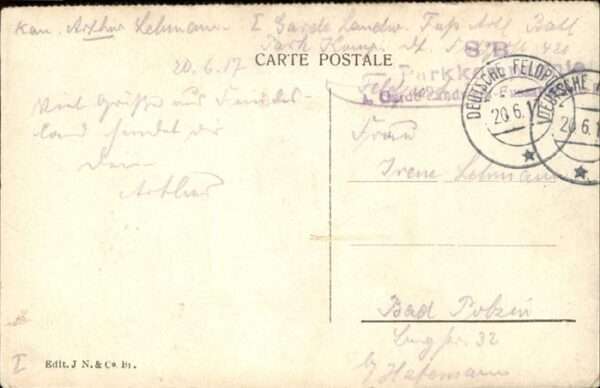 Kan. Arthur Lehmann I Garde Landw. Fuß Artl. Batl
Park Komp.
20.6.17
CARTE POSTALE
S.B.
Parkkompanie
DEUTSCHE FELDPOST
20.6.1
DEUTSCHE
20.6.1
Viel Grüße aus Feindes-
land sendet dir
Dein
Arthur
Frau
Irene Lehmann
Bad Polzin
32
b/ Hafemann
I
Edit. J N. & Co. Br.